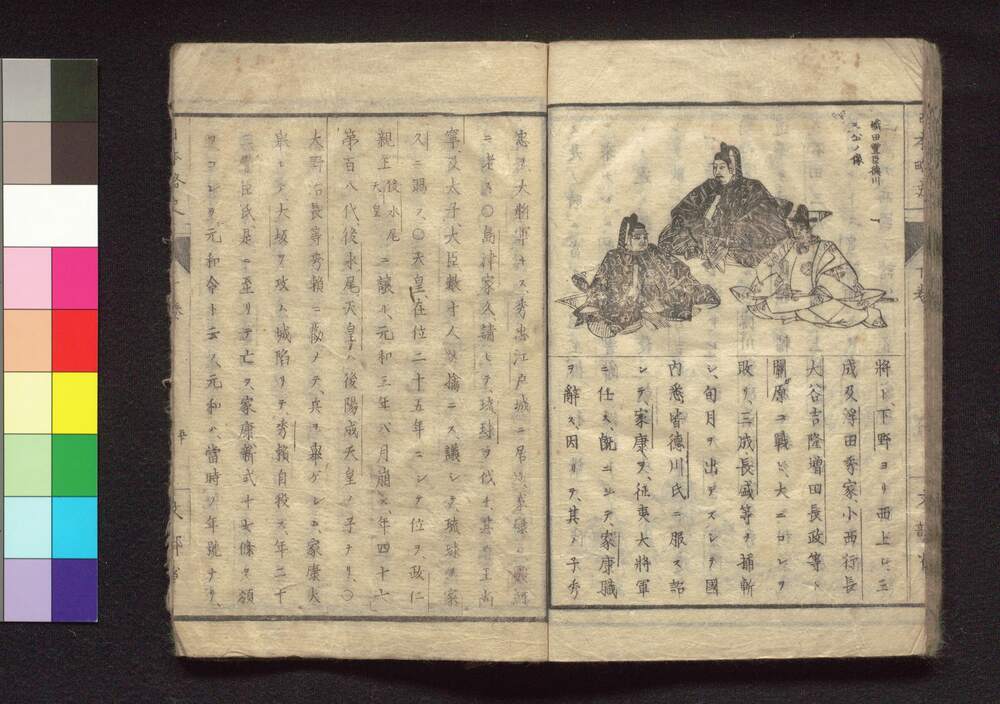 織田豊臣徳川
三公ノ像
將ト下野ヨリ西上ヒ三
成及浮田秀家、小西行長
大谷吉隆増田長政等ト
關原ニ戰ヒ、大ニコレヲ
敗リ、三成長盛等ヲ捕斬
シ旬月ヲ出デズシテ國
内悉皆徳川氏ニ服ス詔
シテ家康ヲ、征夷大將軍
ニ任ス、既ニシテ、家康職
ヲ辭ス、因リテ、其ノ子秀
忠ヲ大將軍トス秀忠江戸城ニ居
〇島津家久請ヒテ、琉球ヲ伐チ、其ノ王尚
寧及太子大臣數十人ヲ擒ニス議シテ琉球ヲ家
久ニ賜フ、〇天皇在位二十五年ニシテ位ヲ、政仁
親王後水尾天皇ニ讓ル、元和三年八月崩ス、年四十七
第百八代後水尾天皇ハ後陽成天皇ノ子ナリ、〇
大野治長等秀頼ニ勸メテ、兵ヲ擧ゲシニ家康大
擧シテ大坂ヲ攻ム城陷リテ、秀頼自殺ス、年二十
三豐臣氏是ニ至リテ亡ス、家康新式十七條ヲ頒
ツコレヲ元和令ト云フ元和ハ、當時ノ年號ナリ、